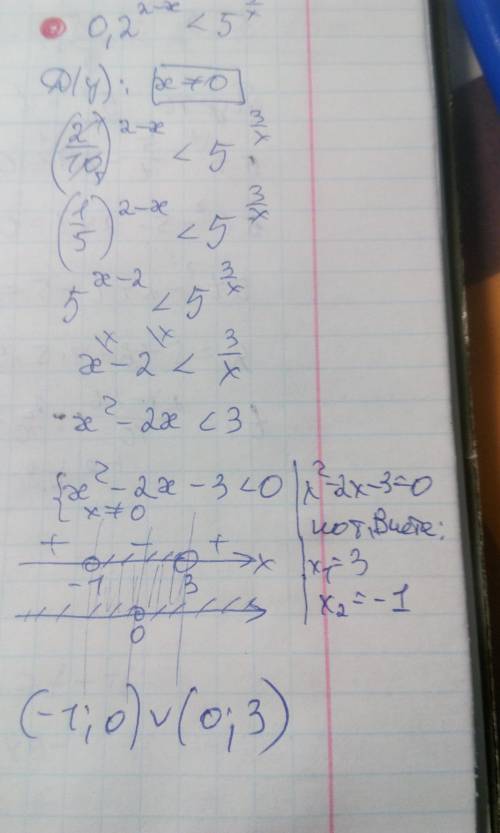 0,2^{2-x} < 5^{\frac{3}{x}}
Д(y): x≠0
(\frac{2}{10})^{2-x} < 5^{\frac{3}{x}}
(\frac{1}{5})^{2-x} < 5^{\frac{3}{x}}
5^{x-2} < 5^{\frac{3}{x}}
x^{\x} - 2^{\x} < \frac{3}{x}
x² - 2x < 3
{x² - 2x - 3 < 0
x ≠ 0
x² - 2x - 3 = 0
по т. Виета:
x₁ = 3
x₂ = -1
+ - + x
-1 3
0
(-1; 0) ∪ (0; 3)